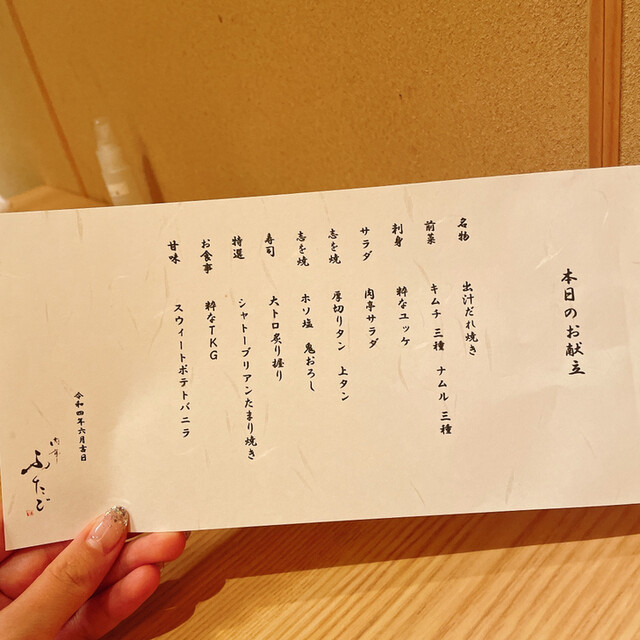 本日のお献立
名物 出汁だれ焼き
前菜 キムチ 三種 ナムル 三種
刺身 粋なユッケ
サラダ 肉亭サラダ
志を焼 厚切りタン 上タン
志を焼 ホソ塩 鬼おろし
寿司 大トロ炙り握り
特選 シャトーブリアンたまり焼き
お食事 粋なTKG
甘味 スウィートポテトバニラ
令和四年六月吉日
肉亭
ふたご